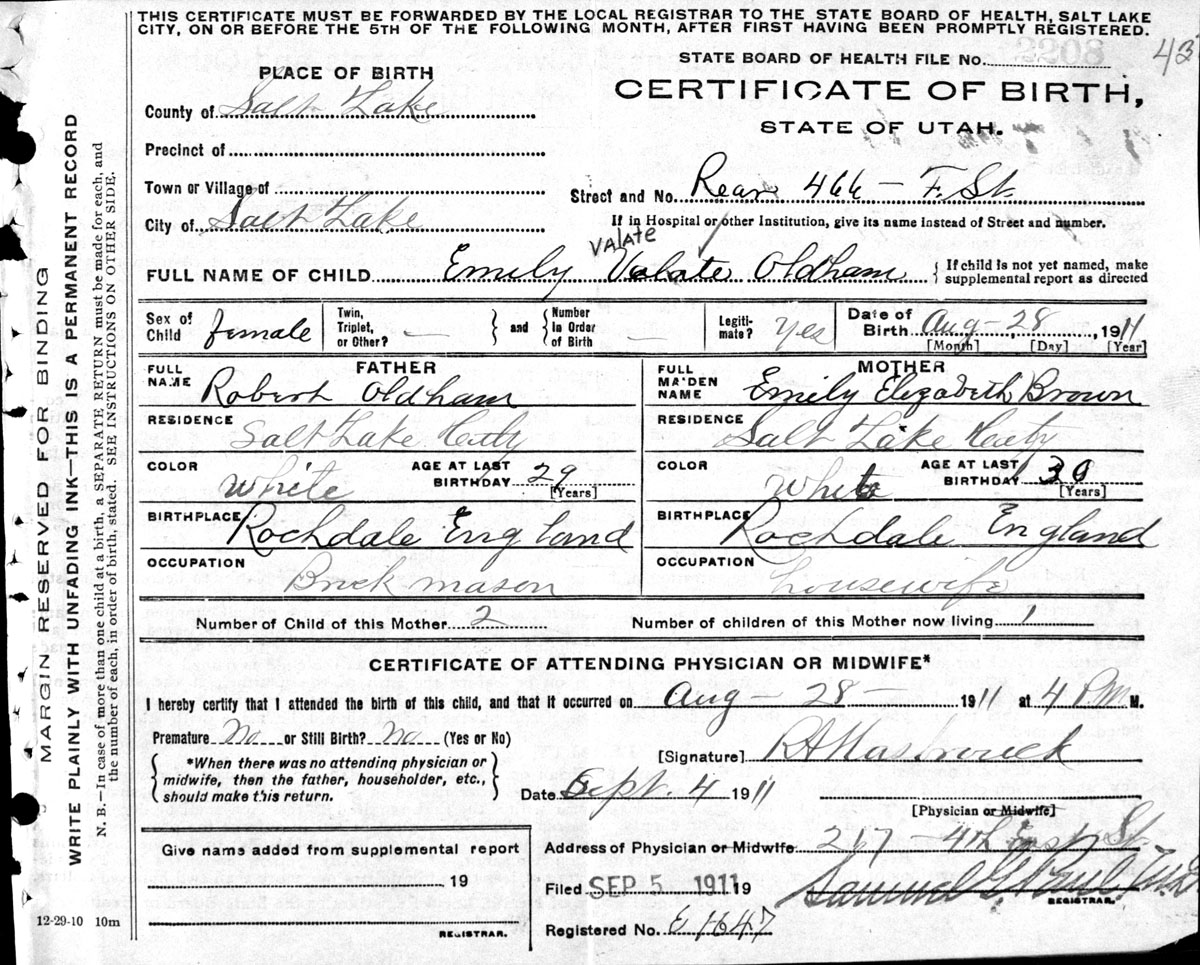 THIS CERTIFICATE MUST BE FORWARDED BY THE LOCAL REGISTRAR TO THE STATE BOARD OF HEALTH, SALT LAKE
CITY, ON OR BEFORE THE 5TH OF THE FOLLOWING MONTH, AFTER FIRST HAVING BEEN PROMPTLY REGISTERED.
STATE BOARD OF HEALTH FILE No. 2208
43
PLACE OF BIRTH
CERTIFICATE OF BIRTH,
STATE OF UTAH.
County of Salt Lake
Precinct of
Town or Village of
Street and No. Rear 466 - F. St.
City of Salt Lake
If in Hospital or other Institution, give its name instead of Street and number.
VALATE
FULL NAME OF CHILD Emily Valate Oldham { If child is not yet named, make supplemental report as directed
Sex of Child female
Twin, Triplet, or Other? —
} and {
Number In Order of Birth —
Legiti-mate? Yes
Date of Birth Aug - 28, 1911
[Month] [Day] [Year]
FATHER
FULL NAME Robert Oldham
RESIDENCE Salt Lake City
COLOR White
AGE AT LAST BIRTHDAY 29 [Years]
BIRTHPLACE Rochdale England
OCCUPATION Brick mason
MOTHER
FULL MAIDEN NAME Emily Elizabeth Brown
RESIDENCE Salt Lake City
COLOR White
AGE AT LAST BIRTHDAY 30 [Years]
BIRTHPLACE Rochdale England
OCCUPATION housewife
Number of Child of this Mother 2
Number of children of this Mother now living 1
CERTIFICATE OF ATTENDING PHYSICIAN OR MIDWIFE*
I hereby certify that I attended the birth of this child, and that it occurred on Aug - 28 - 1911 at 4 P.M. M.
Premature No or Still Birth? No (Yes or No)
[Signature] R A Hasbrouck
{ *When there was no attending physician or
midwife, then the father, householder, etc.,
should make this return. }
Date Sept. 4 1911
[Physician or Midwife]
Give name added from supplemental report
19
REGISTRAR.
Address of Physician or Midwife 267 - 4th East St
Filed SEP 5 1911 19
Samuel G. Paul
REGISTRAR.
Registered No. E 1647
12-29-10 10m
MARGIN RESERVED FOR BINDING
WRITE PLAINLY WITH UNFADING INK—THIS IS A PERMANENT RECORD
N. B.—In case of more than one child at a birth, a SEPARATE RETURN must be made for each, and
the number of each, in order of birth, stated. SEE INSTRUCTIONS ON OTHER SIDE.